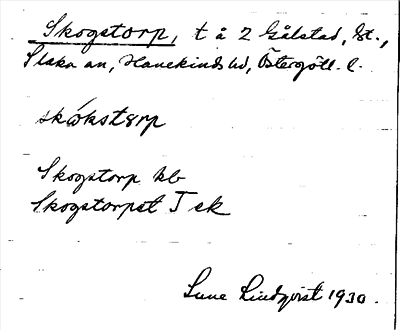 Skogstorp, t å 2 Gålstad, St.,
Slaka sn, Hanekinds hd, Östergötl. l.
skòkstɛrp
Skogstorp kb
Skogstorpet T ek
Sune Lindqvist 1930.